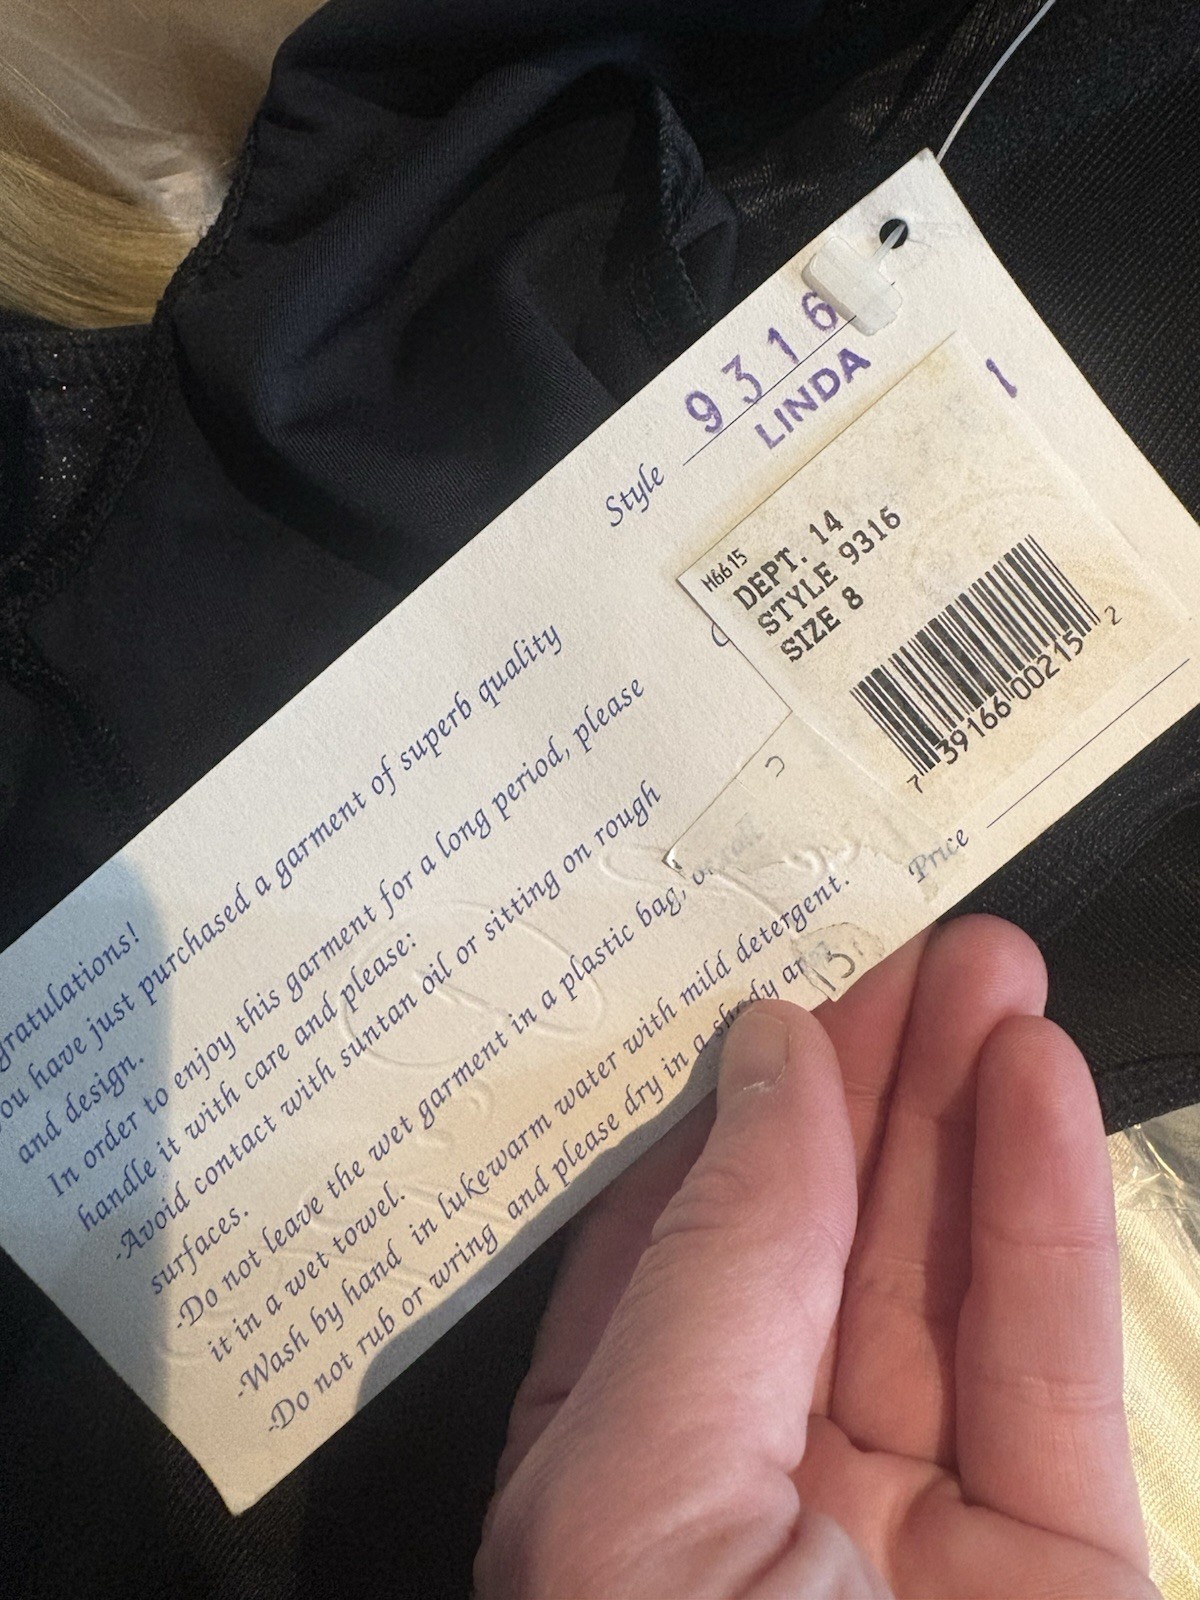 9316
Style
LINDA
1
M6615
DEPT. 14
STYLE 9316
SIZE 8
7 39166 00215 2
Price
13
gratulations!
ou have just purchased a garment of superb quality
and design.
In order to enjoy this garment for a long period, please
handle it with care and please:
-Avoid contact with suntan oil or sitting on rough
surfaces.
-Do not leave the wet garment in a plastic bag,
it in a wet towel.
-Wash by hand in lukewarm water with mild detergent.
-Do not rub or wring and please dry in a shady